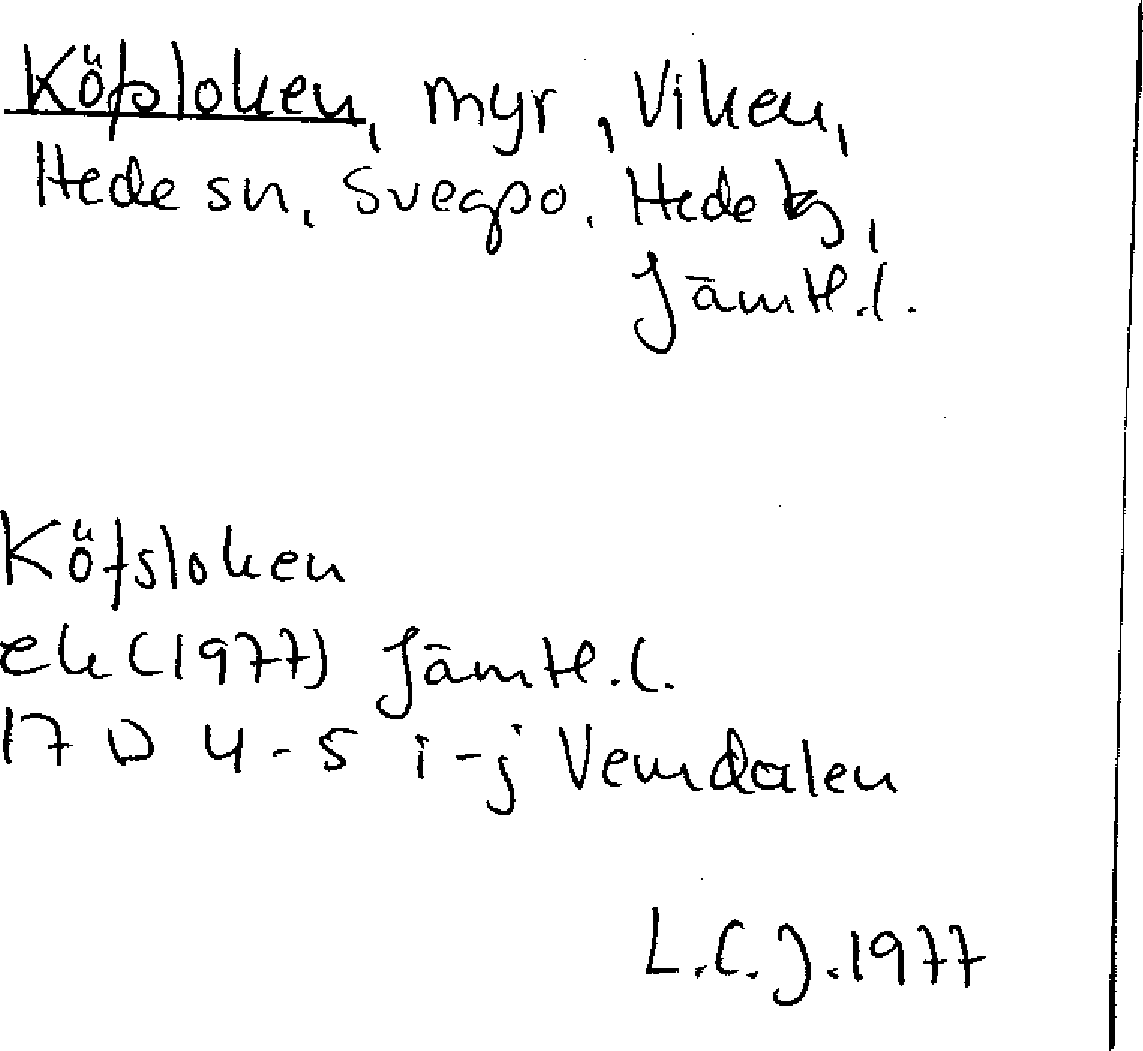 Köfsloken, myr, Viken,
Hede sn, Svegpo. Hede tg,
Jämtl.l.
Köfsloken
ek (1977) Jämtl.l.
17 D 4-5 i-j Vemdalen
L.C.J. 1977